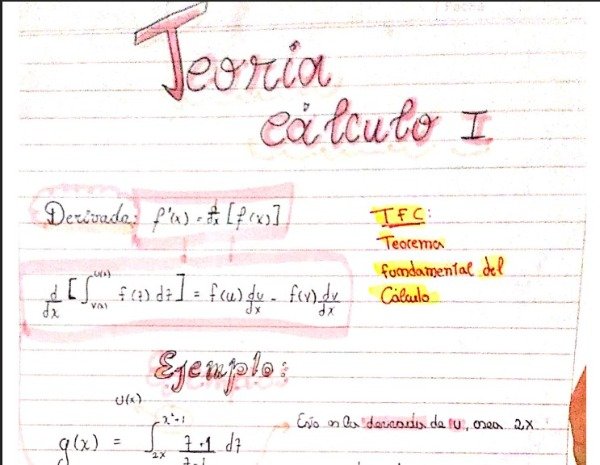 Teoría
cálculo I
Derivada: f'(x) = d/dx [f(x)]
TFC:
Teorema
fundamental del
Cálculo
d/dx [∫_{v(x)}^{u(x)} f(t) dt] = f(u) du/dx - f(v) dv/dx
Ejemplo:
u(x)
g(x) = ∫_{2x}^{x²+1} dt
la derivada de u, osea 2x